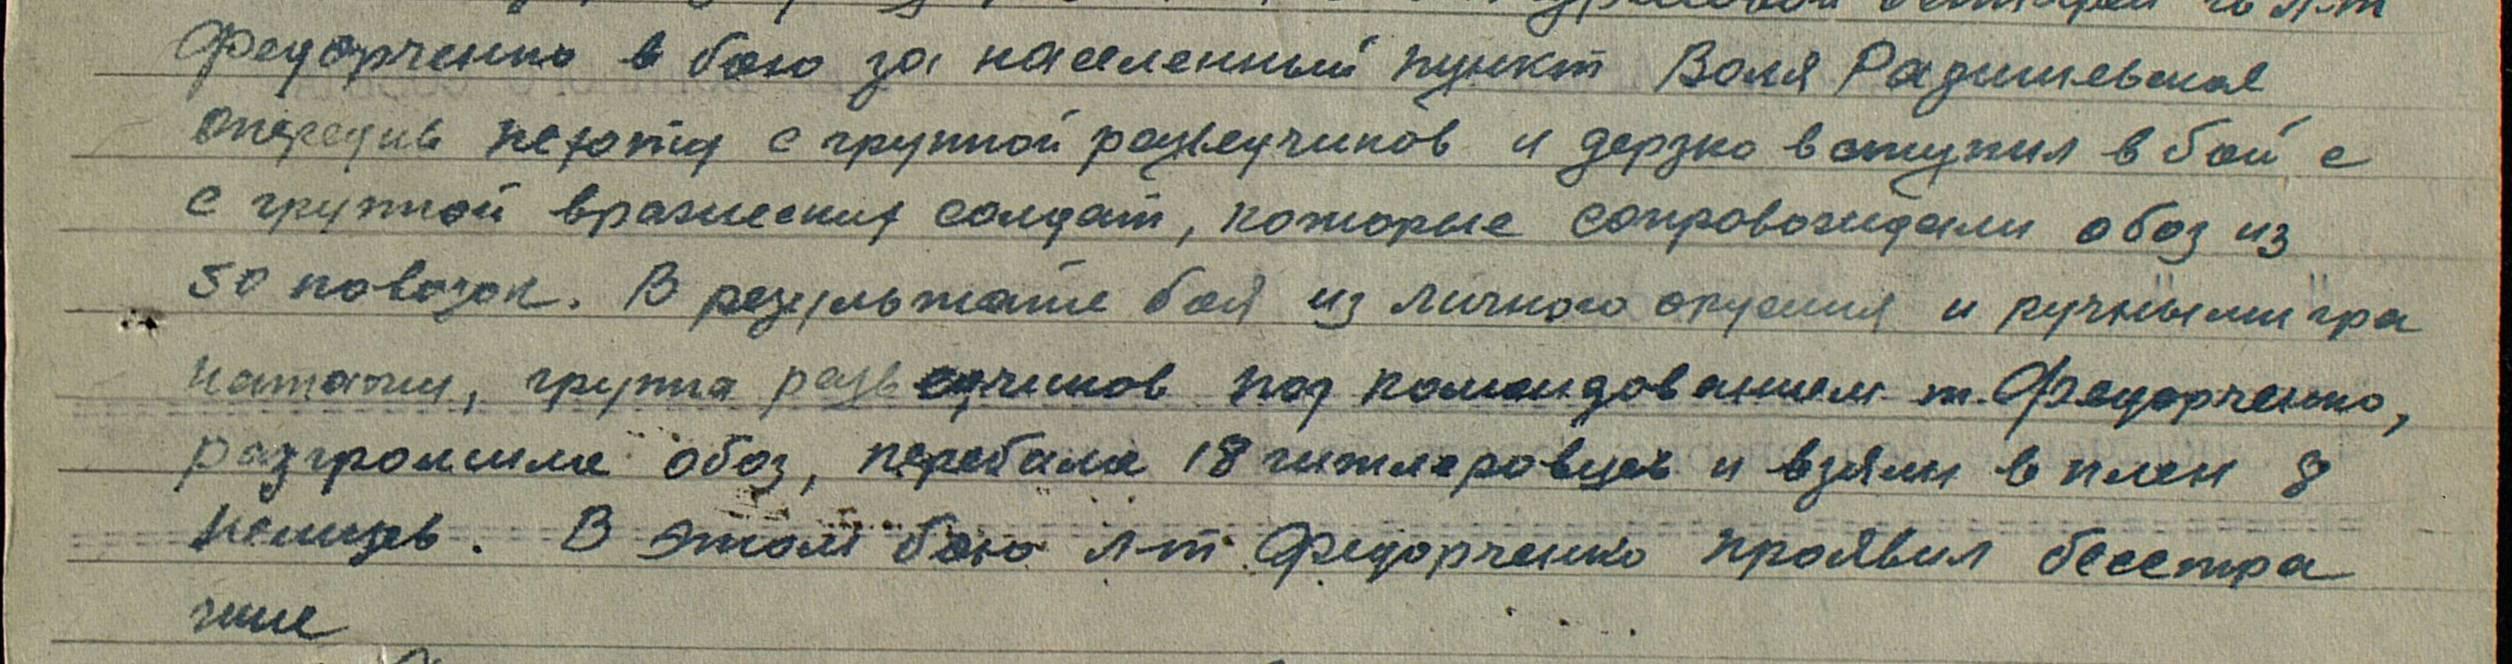 Федорченко в бою за населенный пункт Воля Радзишевская
опередив пехоту с группой разведчиков и дерзко вступил в бой с
с группой вражеских солдат, которые сопровождали обоз из
50 повозок. В результате боя из личного оружия и ручными гра
натами, группа разведчиков под командованием т. Федорченко,
разгромила обоз, перебила 18 гитлеровцев и взяли в плен 8
немцев. В этом бою л-т Федорченко проявил бесстра
шие